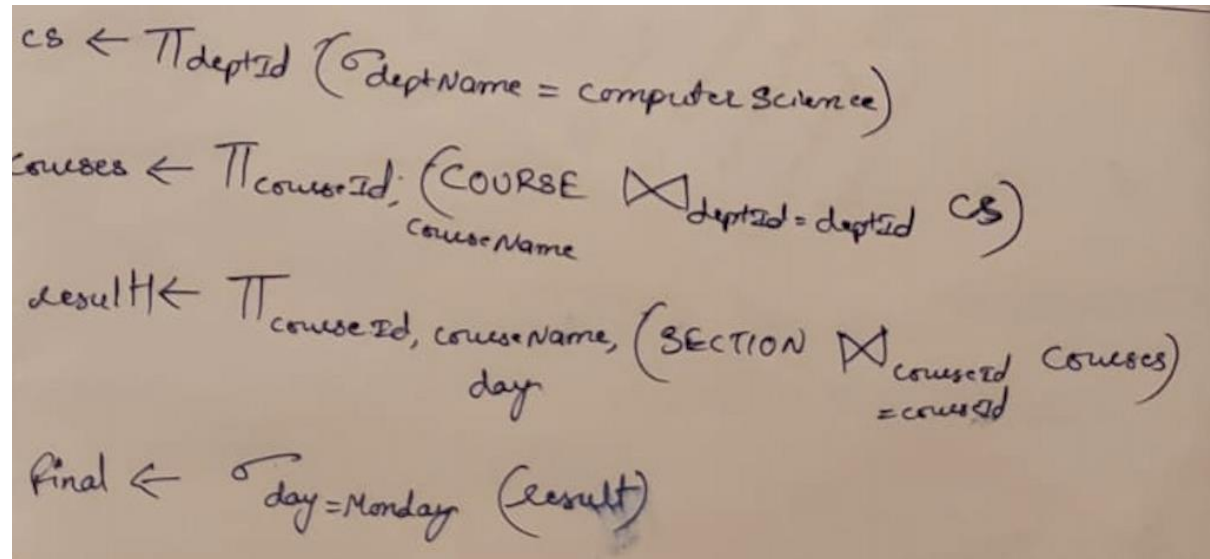 cs ← π deptId (σ deptName = computer science)
courses ← π courseId, courseName (COURSE ⋈ deptId = deptId CS)
result ← π courseId, courseName, day (SECTION ⋈ courseId = courseId courses)
final ← σ day = Monday (result)